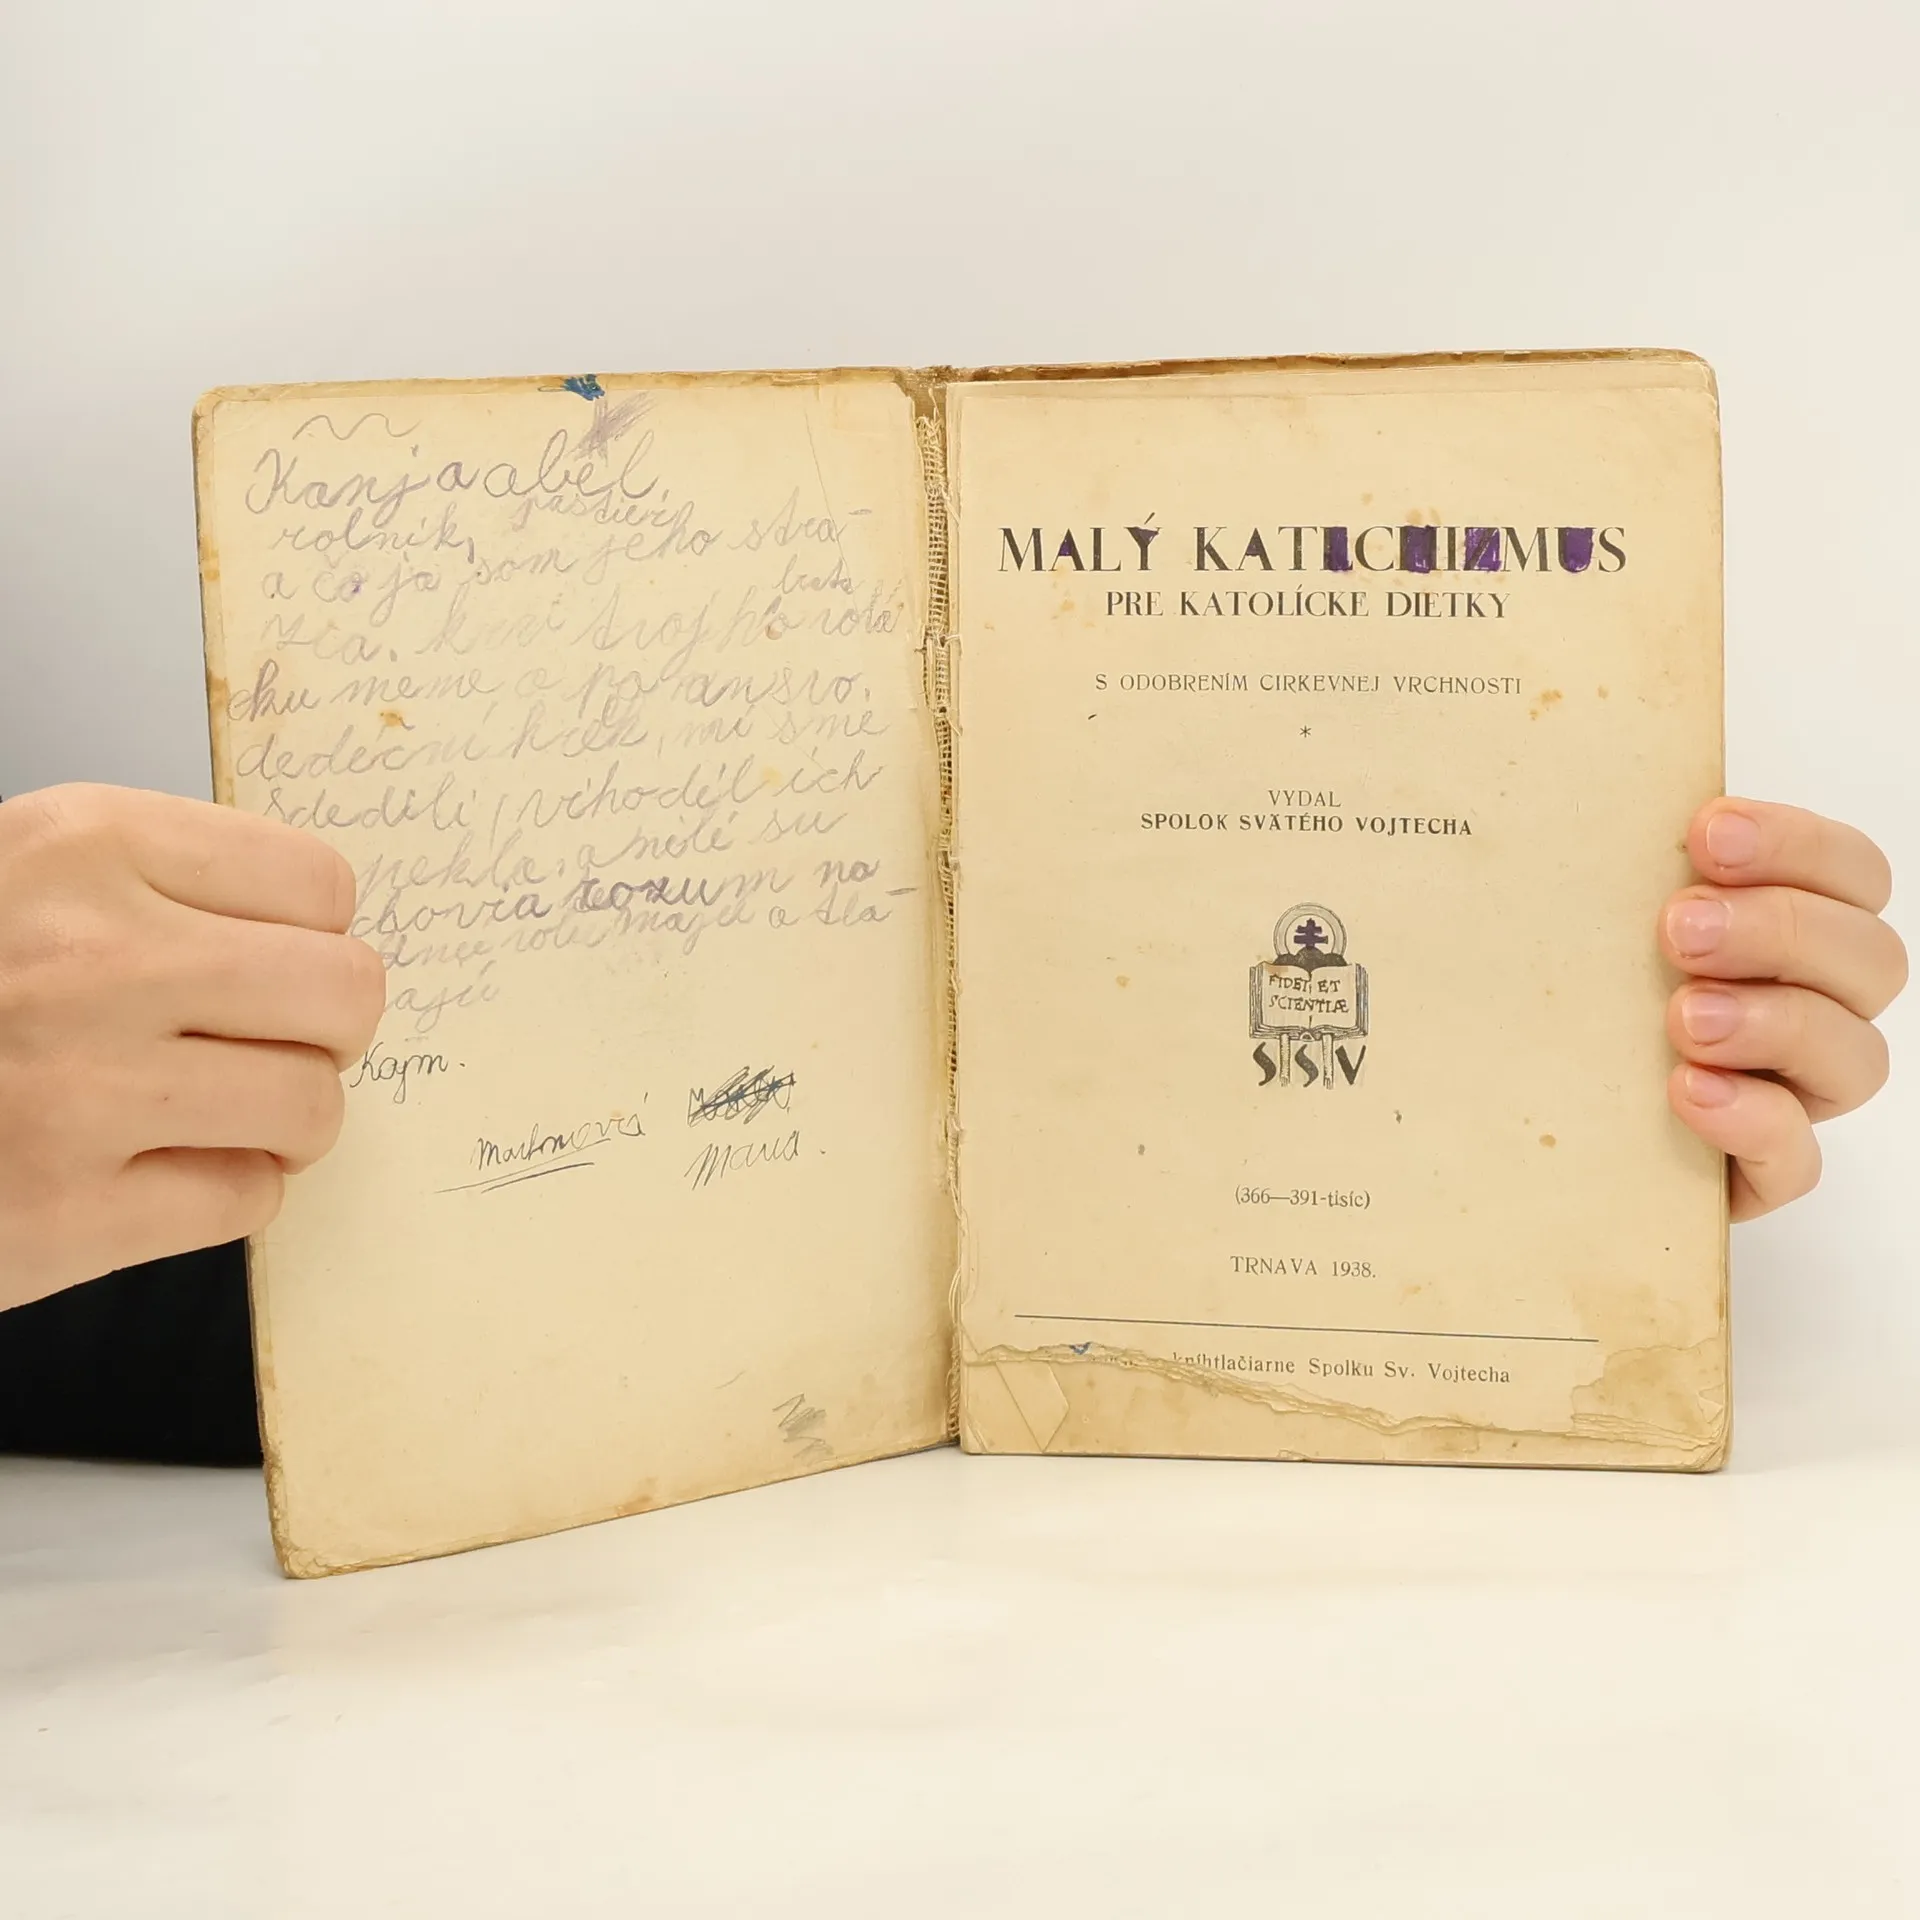 Kanj a abel
pastier,
rolník,
a čo ja som jeho strá-
brata
žca. krv tvojho volá
ku meme, a po
dedeční hrek, mi sme
sdedili, vihodil ich
pekla, a mili su
rozum na
majú a tla-
ajú
Kajm.
Martonová
Maria.
MALÝ KATECHIZMUS
PRE KATOLÍCKE DIETKY
S ODOBRENÍM CIRKEVNEJ VRCHNOSTI
*
VYDAL
SPOLOK SVÄTÉHO VOJTECHA
FIDEI ET
SCIENTIÆ
SSV
(366—391-tisíc)
TRNAVA 1938.
kníhtlačiarne Spolku Sv. Vojtecha